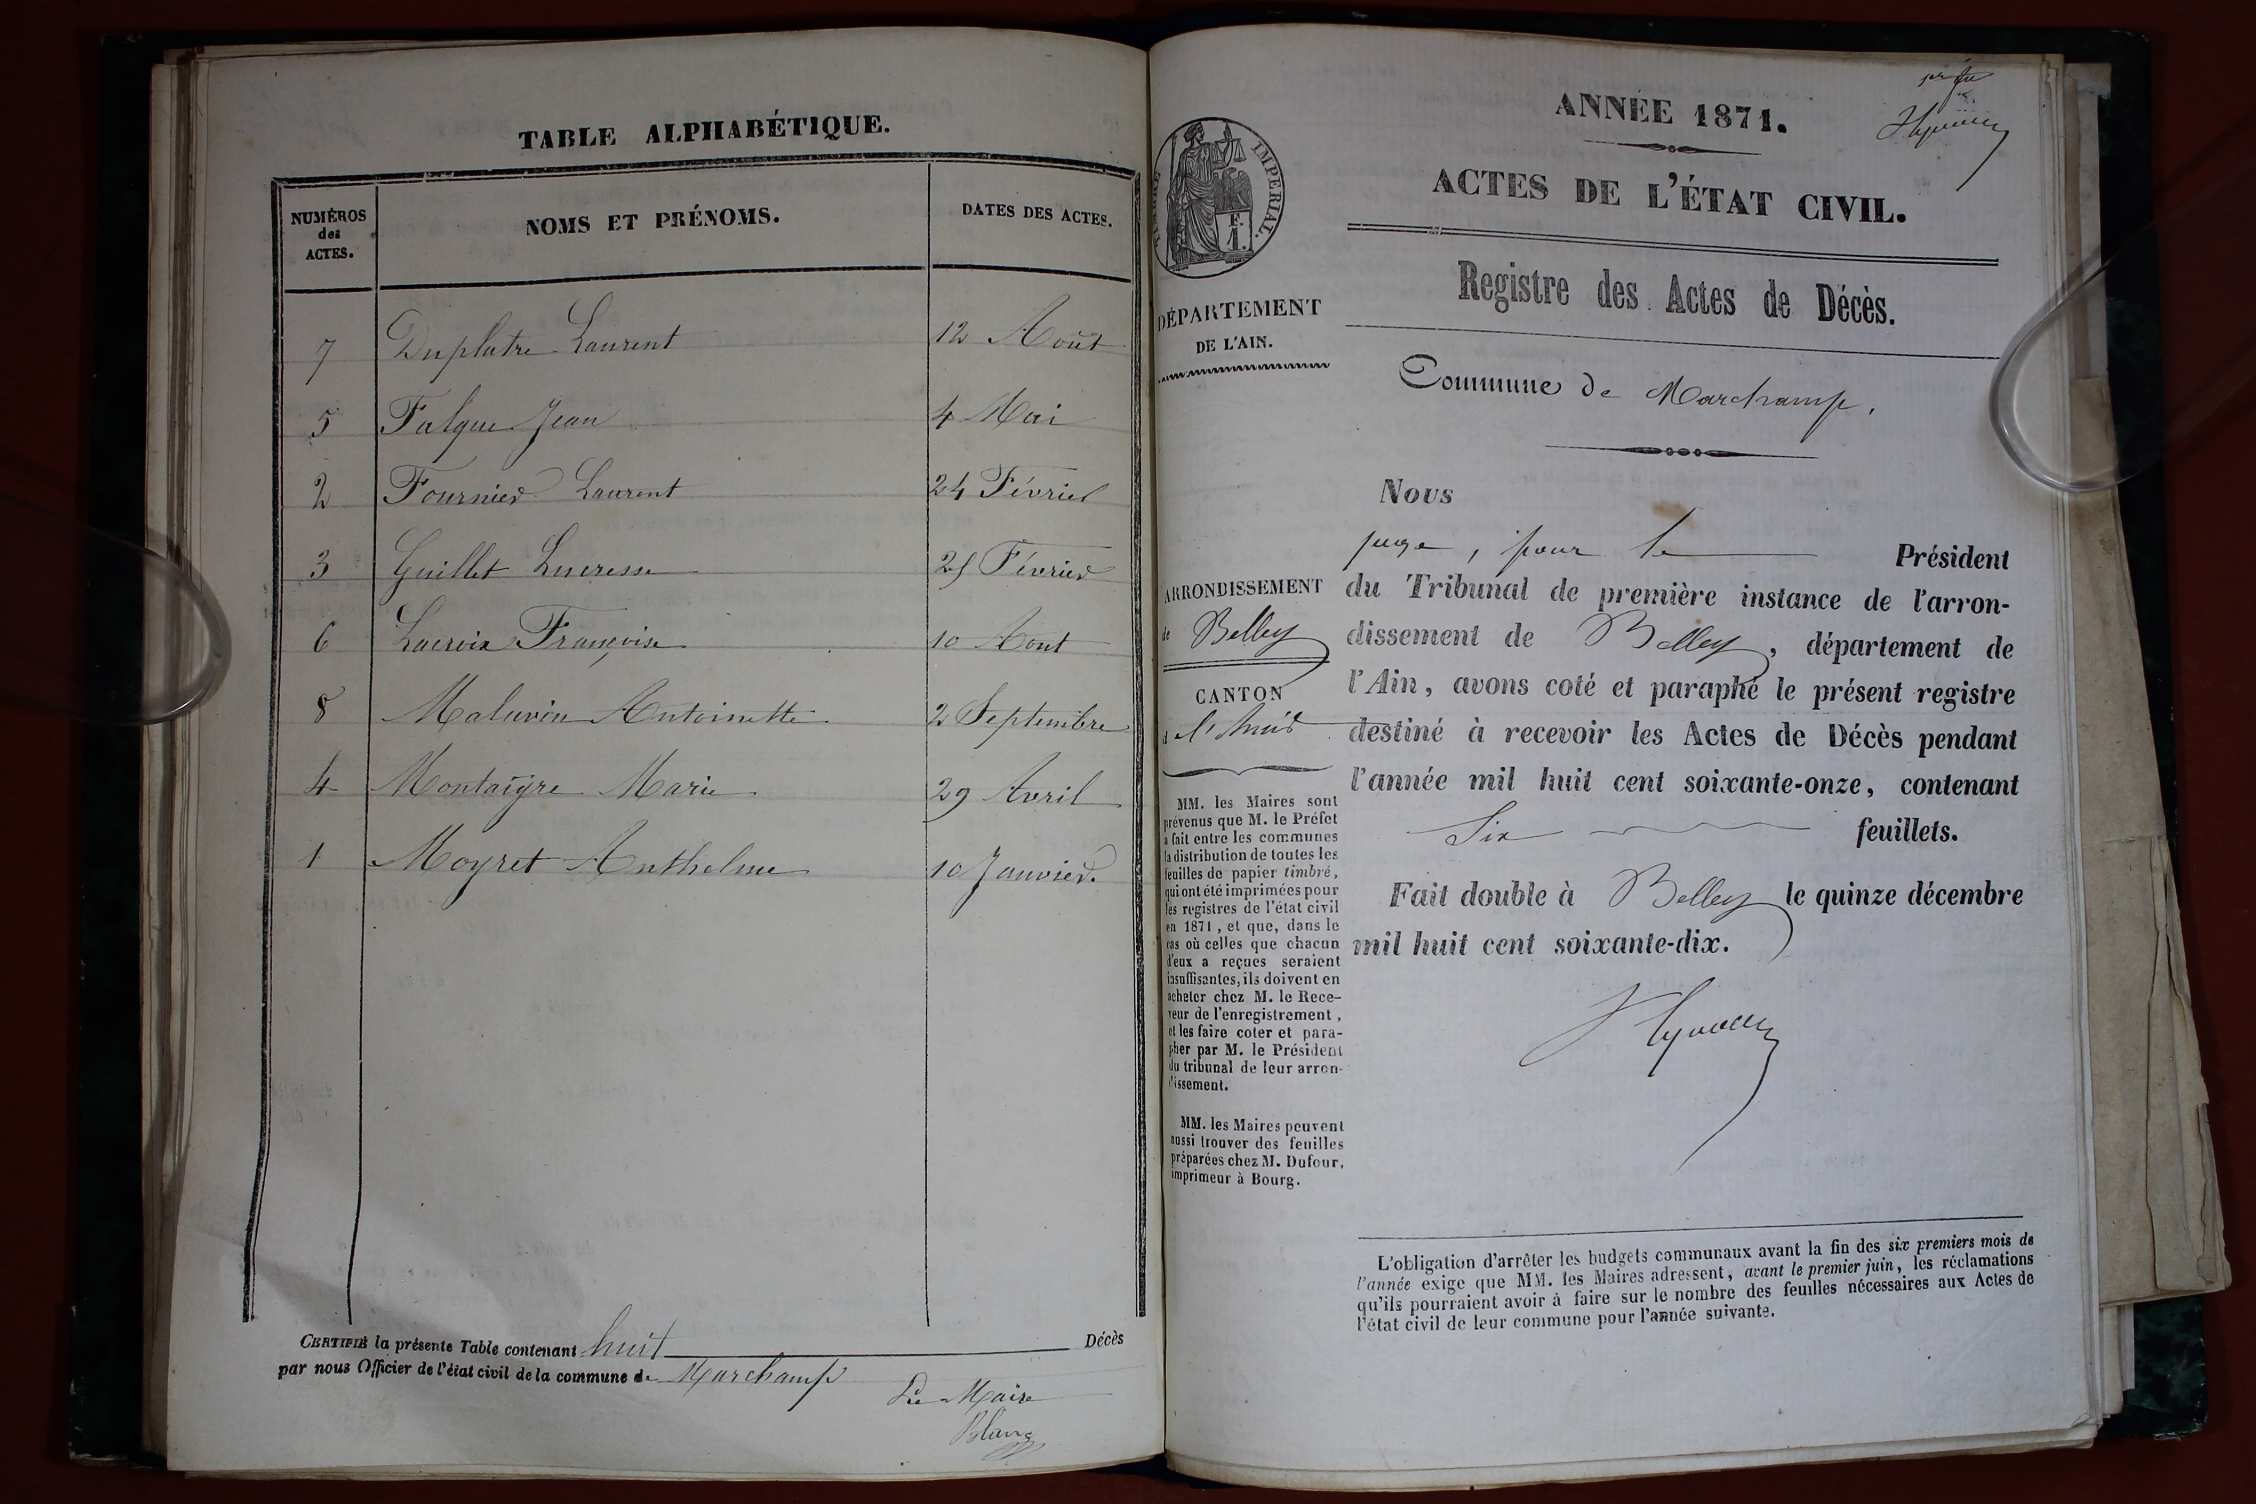 TABLE ALPHABÉTIQUE.
NUMÉROS
des
ACTES.
NOMS ET PRÉNOMS.
DATES DES ACTES.
7 Duplatre Laurent 12 Août
5 Falque Jean 4 Mai
2 Fournier Laurent 24 Février
3 Guillet Lucresse 25 Février
6 Lacroix Françoise 10 Aout
8 Antoinette 2 Septembre
4 Montaigre Marie 29 Avril
1 Moyret Anthelme 10 Janvier.
CERTIFIÉ la présente Table contenant huit Décès
par nous Officier de l'état civil de la commune de Marchamp
Le Maire
Blanc
ANNÉE 1871.
ACTES DE L'ÉTAT CIVIL.
TIMBRE IMPERIAL.
F.
1.
Registre des Actes de Décès.
DÉPARTEMENT
DE L'AIN.
Commune de Marchamp.
ARRONDISSEMENT
de Belley
CANTON
d l'huis
MM. les Maires sont
prévenus que M. le Préfet
a fait entre les communes
la distribution de toutes les
feuilles de papier timbré,
qui ont été imprimées pour
les registres de l'état civil
en 1871, et que, dans le
cas où celles que chacun
d'eux a reçues seraient
insuffisantes, ils doivent en
acheter chez M. le Rece-
veur de l'enregistrement,
et les faire coter et para-
pher par M. le Président
du tribunal de leur arron-
dissement.
MM. les Maires peuvent
aussi trouver des feuilles
préparées chez M. Dufour,
imprimeur à Bourg.
Nous
juge, pour le Président
du Tribunal de première instance de l'arron-
dissement de Belley, département de
l'Ain, avons coté et paraphé le présent registre
destiné à recevoir les Actes de Décès pendant
l'année mil huit cent soixante-onze, contenant
Six feuillets.
Fait double à Belley le quinze décembre
mil huit cent soixante-dix.
L'obligation d'arrêter les budgets communaux avant la fin des six premiers mois de
l'année exige que MM. les Maires adressent, avant le premier juin, les réclamations
qu'ils pourraient avoir à faire sur le nombre des feuilles nécessaires aux Actes de
l'état civil de leur commune pour l'année suivante.